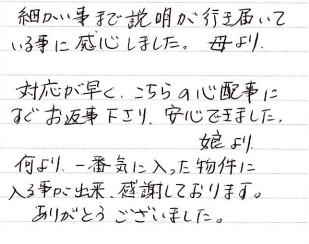 細かい事まで説明が行き届いて
いる事に感心しました。母より.
対応が早く、こちらの心配事に
すぐお返事下さり、安心できました.
娘より
何より、一番気に入った物件に
入る事が出来、感謝しております。
ありがとうございました。